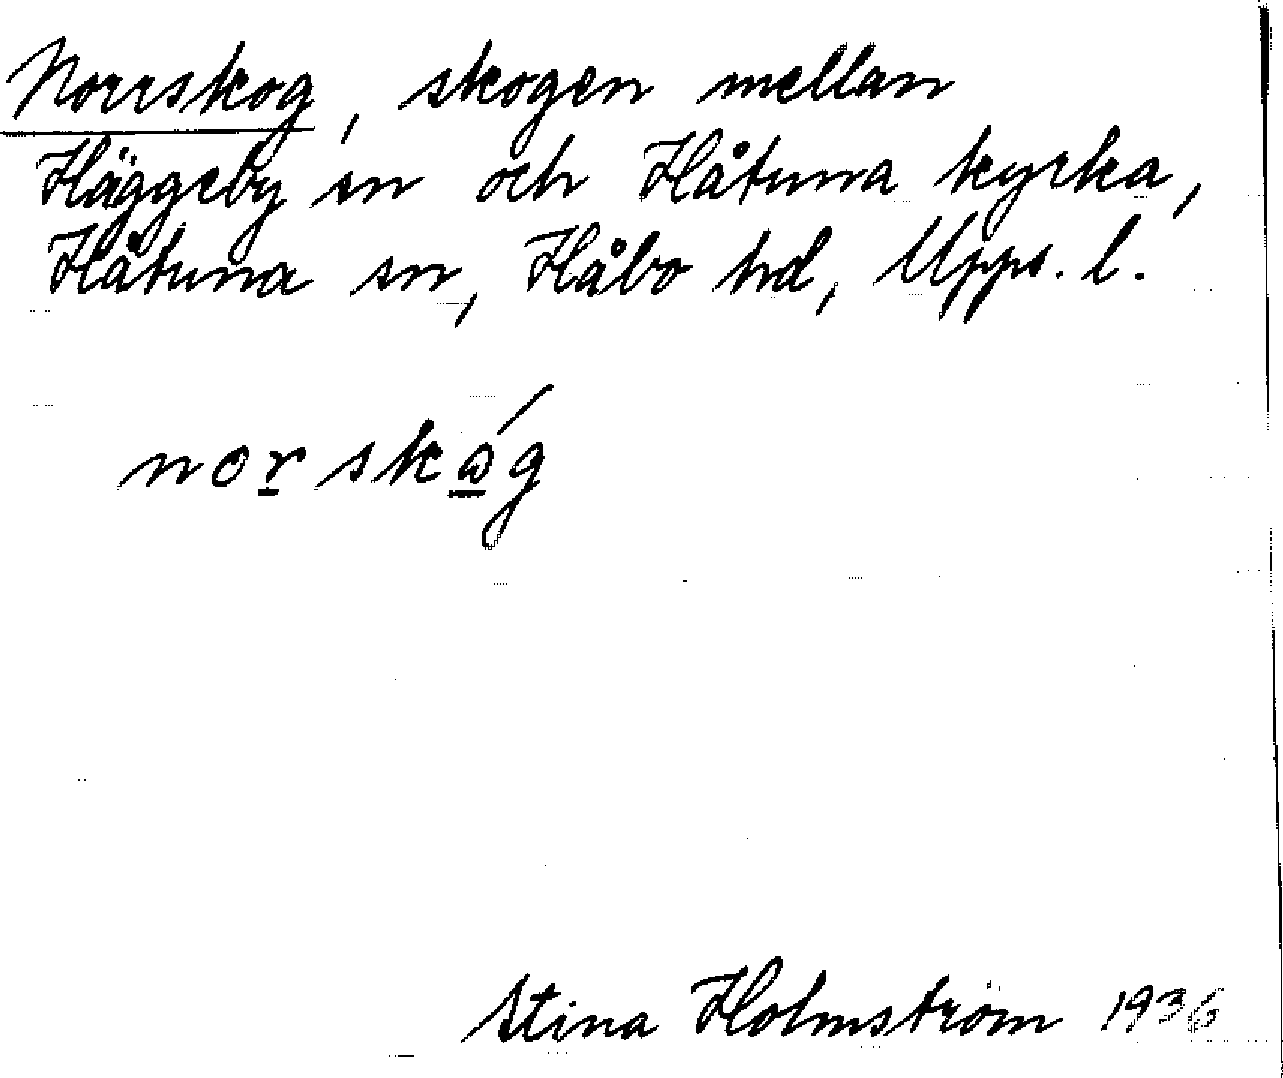 Norrskog, skogen mellan
Häggeby sn och Håtuna kyrka,
Håtuna sn, Håbo hd, Upps. l.
norskóg
Stina Holmström 1936